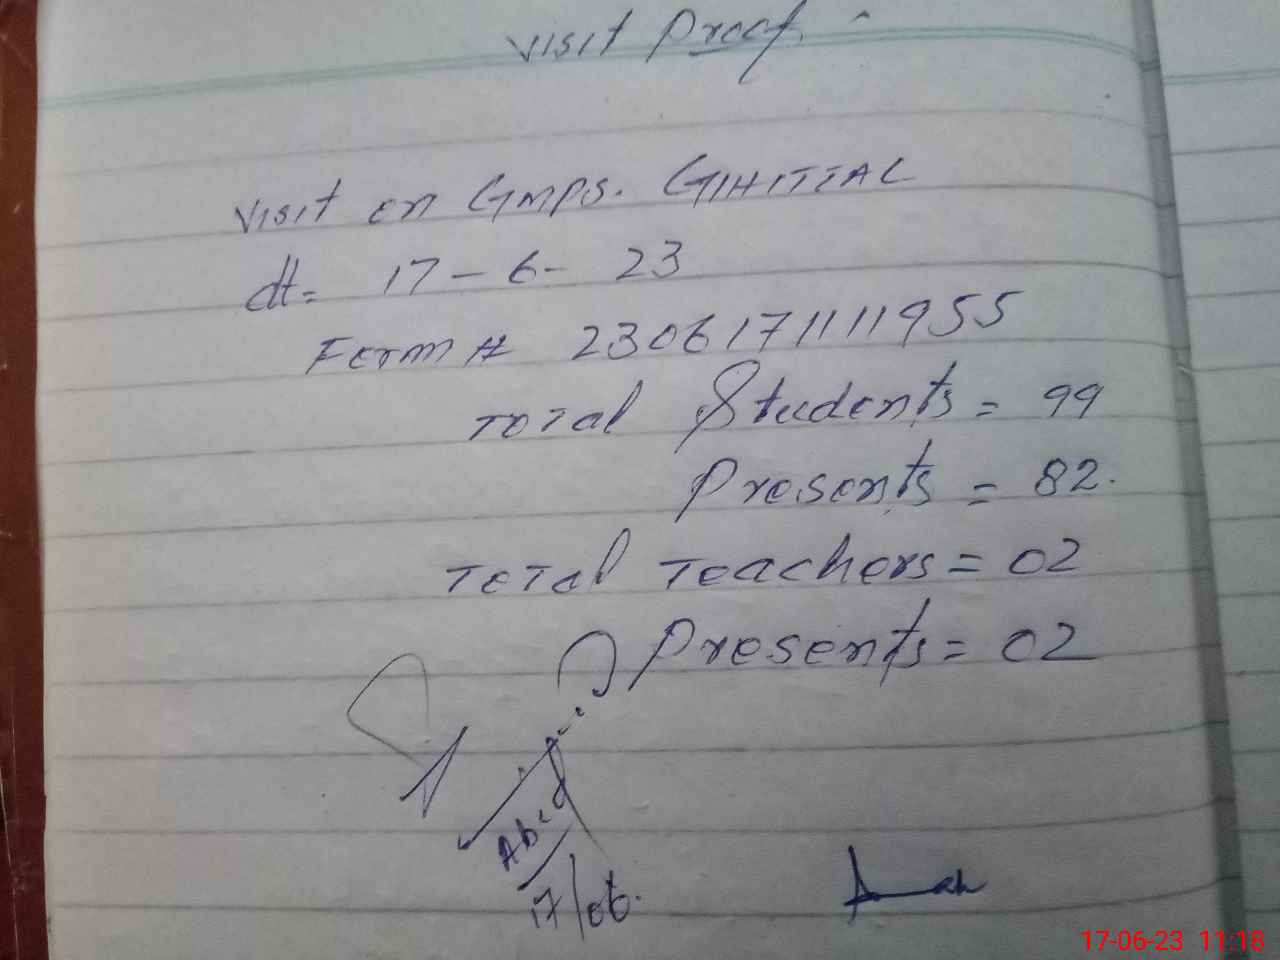 Visit Proof
Visit on GMPS. GIHITIAL
dt= 17-6-23
Form # 230617111955
Total Students = 99
Presents = 82.
Total Teachers = 02
Presents = 02
Abid
17/06.
17-06-23 11:18